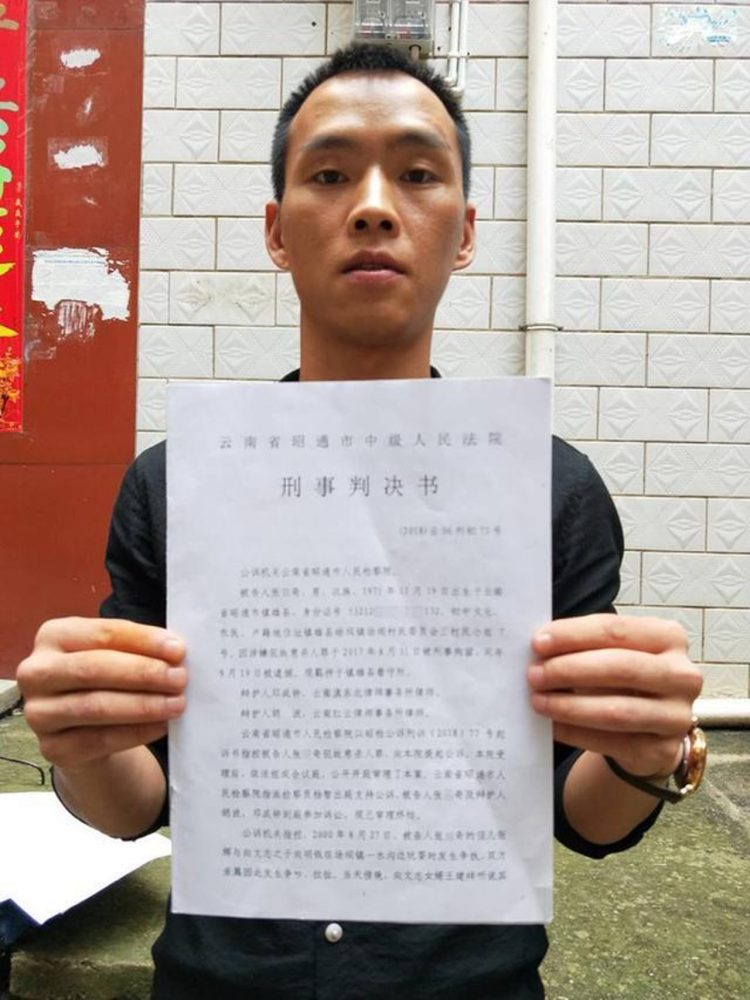 云南省昭通市中级人民法院
刑事判决书
(2018)云06刑初75号
公诉机关云南省昭通市人民检察院。
被告人张 奇，男，汉族，1971年12月19日出生于云南
省昭通市镇雄县，身份证号 53212 132，初中文化，
农民，户籍地住址镇雄县 坝镇 坝村民委员会三村民小组7
号。因涉嫌犯故意杀人罪于2017年8月31日被刑事拘留，同年
9月19日被逮捕。现羁押于镇雄县看守所。
辩护人邓成钟，云南滇东北律师事务所律师。
辩护人胡 波，云南红云律师事务所律师。
云南省昭通市人民检察院以昭检公诉刑诉（2018）77号起
诉书指控被告人张 奇犯故意杀人罪，向本院提起公诉。本院受
理后，依法组成合议庭，公开开庭审理了本案。云南省昭通市人
民检察院指派检察员 出庭支持公诉，被告人张 奇及辩护人
胡波、邓成钟到庭参加诉讼。现已审理终结。
公诉机关指控，2000年8月27日，被告人张 奇的侄儿张
辉与向文志之子向明钱在场坝镇一水沟边玩耍时发生争执，双方
亲属因此发生争吵、拉扯。当天傍晚，向文志女婿王建祥听说其